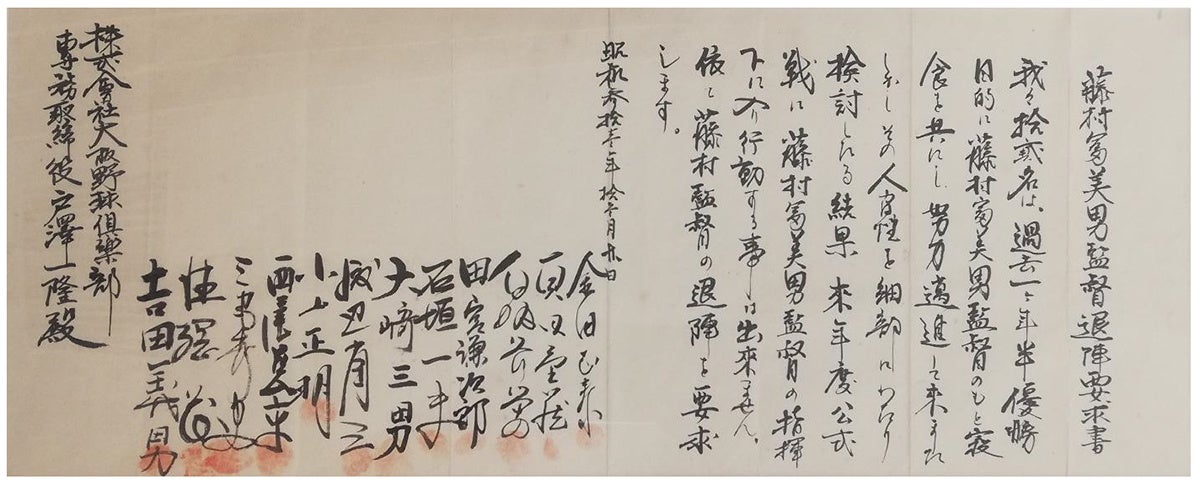 藤村富美男監督退陣要求書
我々拾貳名は、過去一ケ年半優勝
目的に藤村富美男監督のもと寝
食を共にし努力邁進して来ました
しかしその人間性を細部にわたり
検討したる結果来年度公式
戦に藤村富美男監督の指揮
下に入り行動する事は出来ません。
依て藤村監督の退陣を要求
します。
昭和参拾壱年拾壱月 日
金田正泰
真田重蔵
田宮謙次郎
石垣一夫
大崎三男
渡辺省三
小山正明
三宅秀史
吉田義男
株式会社大阪野球倶楽部
専務取締役戸澤一隆殿